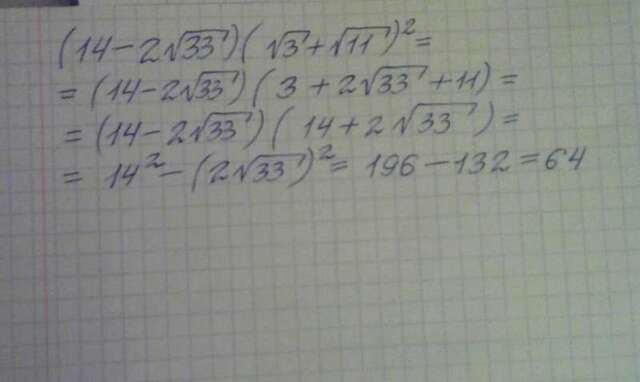 (14-2√33)(√3+√11)²=
=(14-2√33)(3+2√33+11)=
=(14-2√33)(14+2√33)=
=14²-(2√33)²=196-132=64